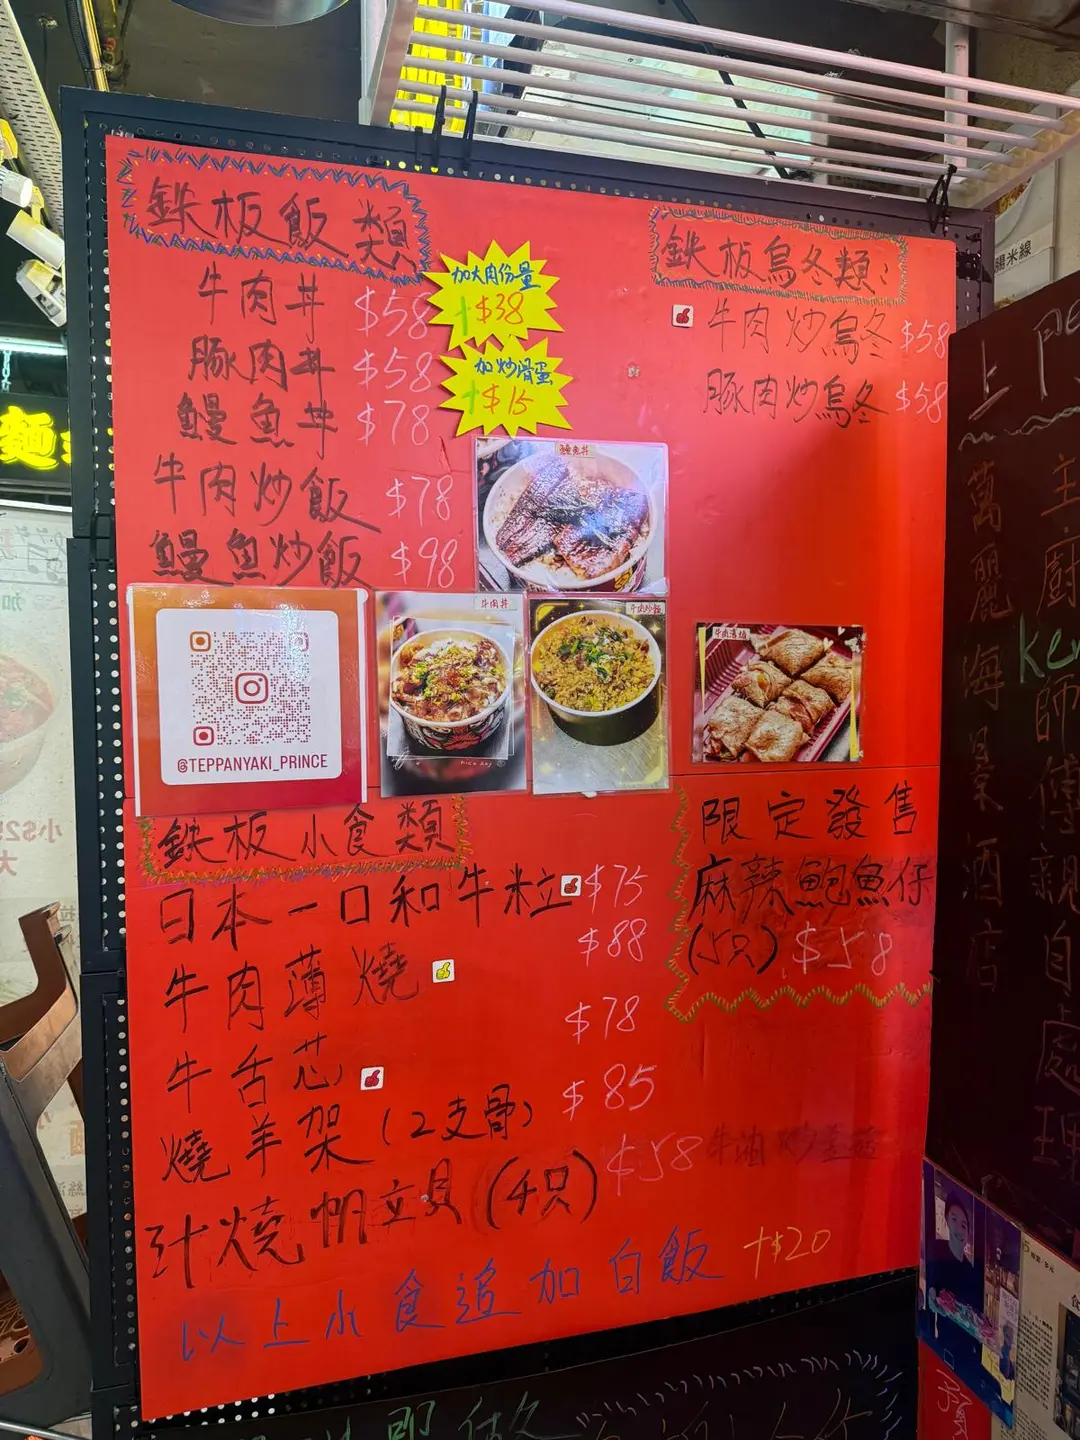 鉄板飯類
牛肉丼 $58
豚肉丼 $58
鰻魚丼 $78
牛肉炒飯 $78
鰻魚炒飯 $98
加大肉份量
+$38
加炒滑蛋
+$15
鉄板烏冬類:
牛肉炒烏冬 $58
豚肉炒烏冬 $58
鰻魚丼
牛肉丼
牛肉炒飯
牛肉薄燒
@TEPPANYAKI_PRINCE
鉄板小食類
日本一口和牛粒 $75
牛肉薄燒 $88
牛舌芯 $78
燒羊架(2支骨) $85
汁燒帆立貝(4只) $58
以上小食追加白飯 +$20
限定發售
麻辣鮑魚仔
(5只) $58
上門
主廚
師傅親自處理
萬麗海景酒店
腸米線
麵
即